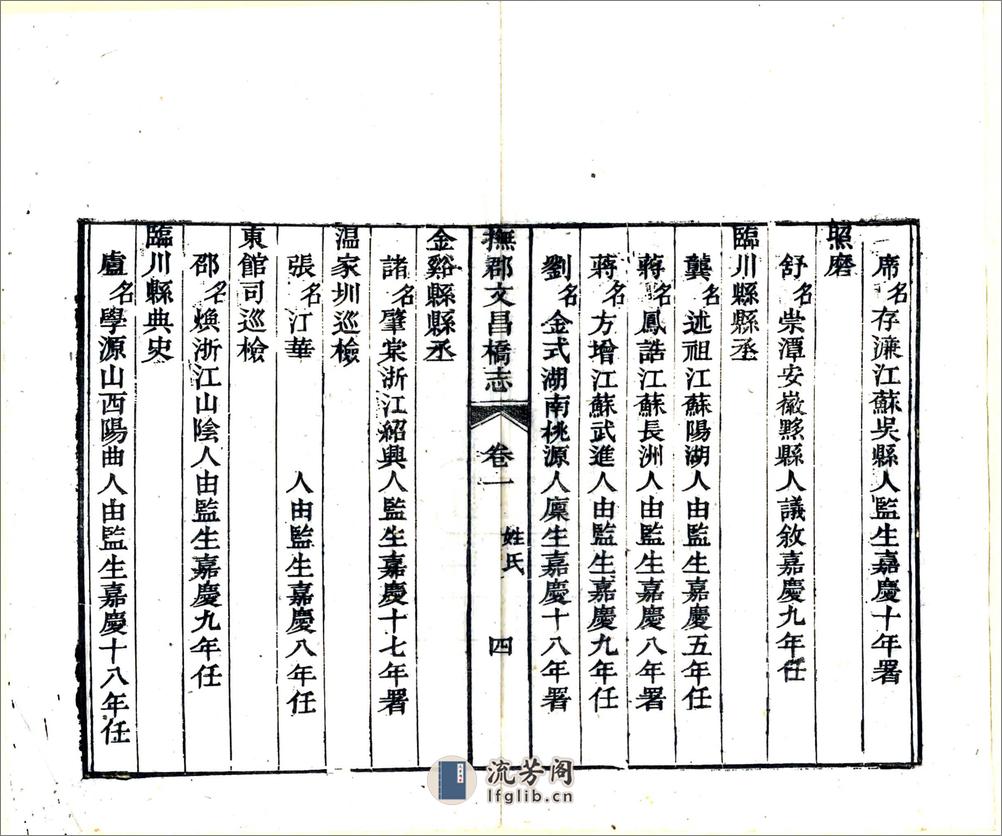 席名存濂江蘇吳縣人監生嘉慶十年署
照磨
舒名崇潭安徽黟縣人議敘嘉慶九年任
臨川縣縣丞
龔名述祖江蘇陽湖人由監生嘉慶五年任
蔣名鳳誥江蘇長洲人由監生嘉慶八年署
蔣名方增江蘇武進人由監生嘉慶九年任
劉名金式湖南桃源人廩生嘉慶十八年署
撫郡文昌橋志 卷一 姓氏 四
金谿縣縣丞
諸名肇棠浙江紹興人監生嘉慶十七年署
温家圳巡檢
張名江華 人由監生嘉慶八年任
東館司巡檢
邵名煥浙江山陰人由監生嘉慶九年任
臨川縣典史
盧名學源山西陽曲人由監生嘉慶十八年任
流芳阁
lfglib.cn